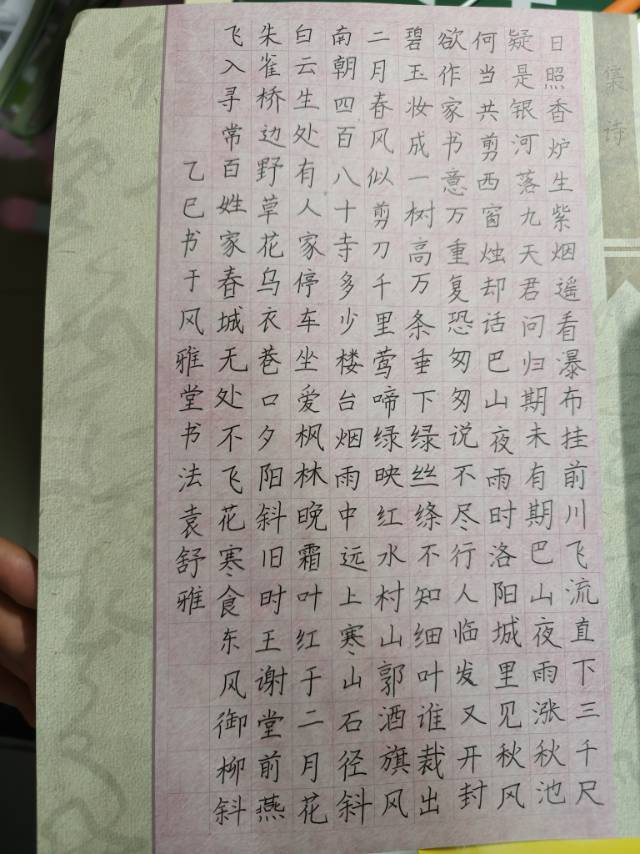 集诗
日照香炉生紫烟遥看瀑布挂前川飞流直下三千尺
疑是银河落九天君问归期未有期巴山夜雨涨秋池
何当共剪西窗烛却话巴山夜雨时洛阳城里见秋风
欲作家书意万重复恐匆匆说不尽行人临发又开封
碧玉妆成一树高万条垂下绿丝绦不知细叶谁裁出
二月春风似剪刀千里莺啼绿映红水村山郭酒旗风
南朝四百八十寺多少楼台烟雨中远上寒山石径斜
白云生处有人家停车坐爱枫林晚霜叶红于二月花
朱雀桥边野草花乌衣巷口夕阳斜旧时王谢堂前燕
飞入寻常百姓家春城无处不飞花寒食东风御柳斜
乙巳书于风雅堂书法袁舒雅